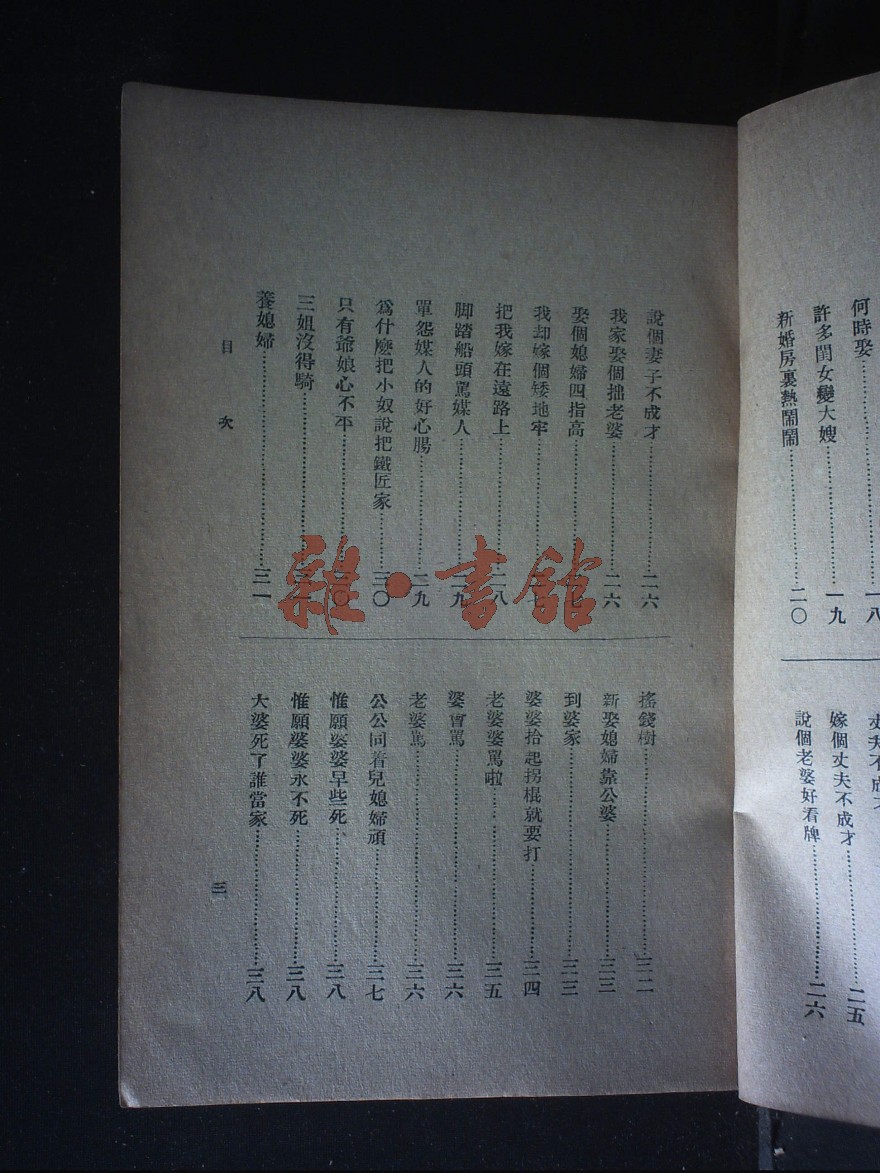 何時娶……一八
許多閨女變大嫂……一九
新婚房裏熱鬧鬧……二〇
嫁個丈夫不成才……二五
說個老婆好看牌……二六
說個妻子不成才……二六
我家娶個拙老婆……二六
娶個媳婦四指高……二七
我却嫁個矮地牢……二七
把我嫁在遠路上……二八
脚踏船頭罵媒人……二九
單怨媒人的好心腸……二九
爲什麽把小奴說把鐵匠家……三〇
只有爺娘心不平……三〇
三姐沒得騎……三一
養媳婦……三一
搖錢樹……三二
新娶媳婦靠公婆……三三
到婆家……三三
婆婆拾起拐棍就要打……三四
老婆婆罵啦……三五
婆會罵……三六
老婆罵……三六
公公同着兒媳婦頑……三七
惟願婆婆早些死……三八
惟願婆婆永不死……三八
大婆死了誰當家……三八
目次
三
雜·書館